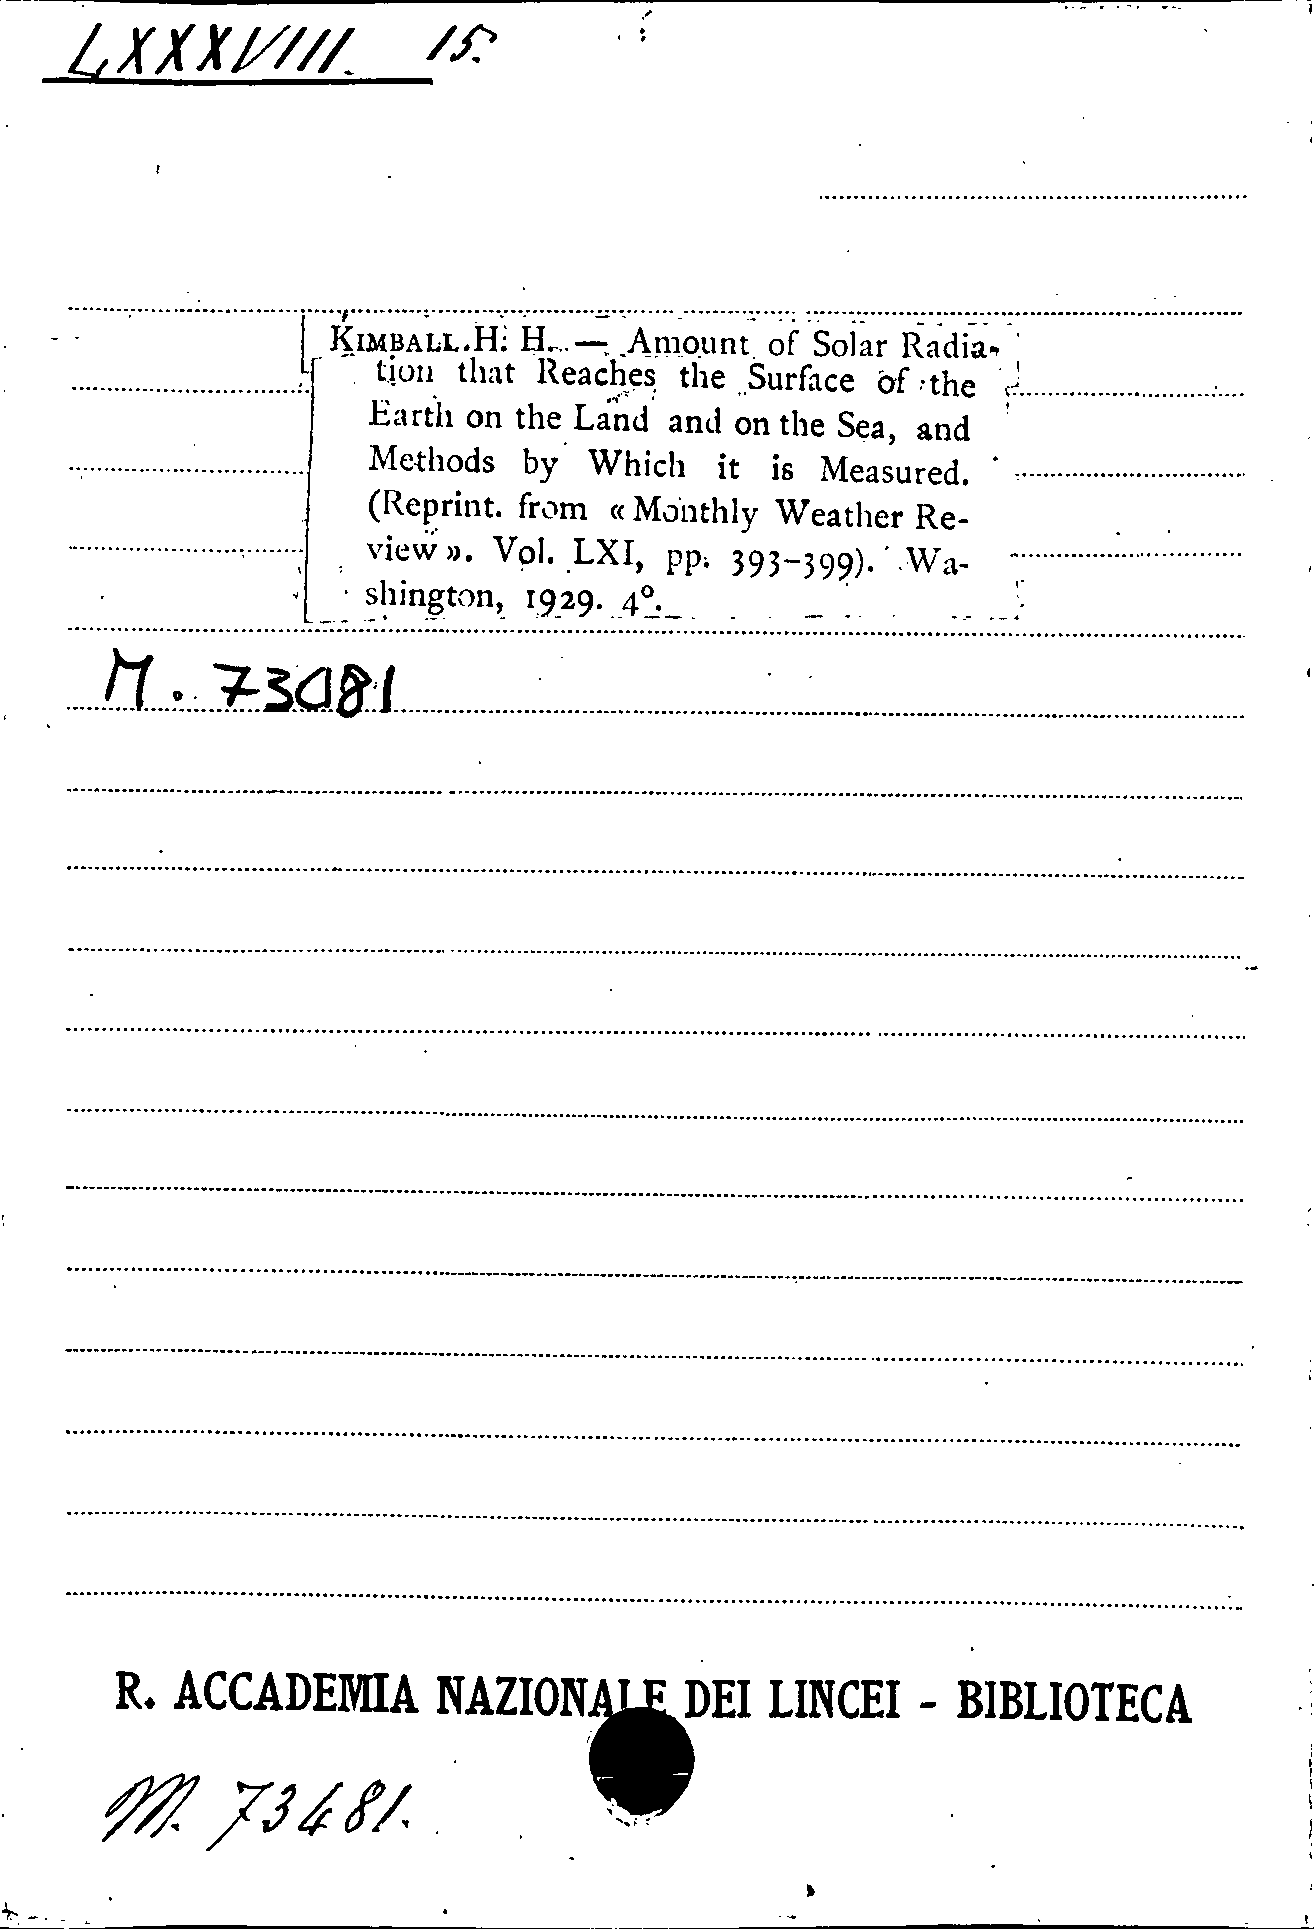 LXXXVIII. 15.
KIMBALL H. H. — Amount of Solar Radia-
tion that Reaches the Surface of the
Earth on the Land and on the Sea, and
Methods by Which it is Measured.
(Reprint. from « Monthly Weather Re-
view ». Vol. LXI, pp. 393-399). Wa-
shington, 1929. 4°.
M. 73081
R. ACCADEMIA NAZIONALE DEI LINCEI - BIBLIOTECA
M. 73481.